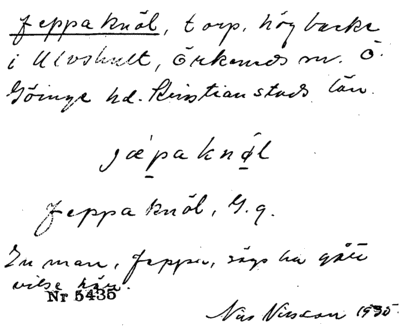 Jeppaknöl, torp, hög backe
i Ulvshult, Örkeneds sn. Ö.
Göinge hd. Kristianstads län.
jæpaknǫ́l
Jeppaknöl, G.g.
En man, Jeppe, sägs ha gått
vilse här.
Nr 5435
Nils Nilsson 1935.